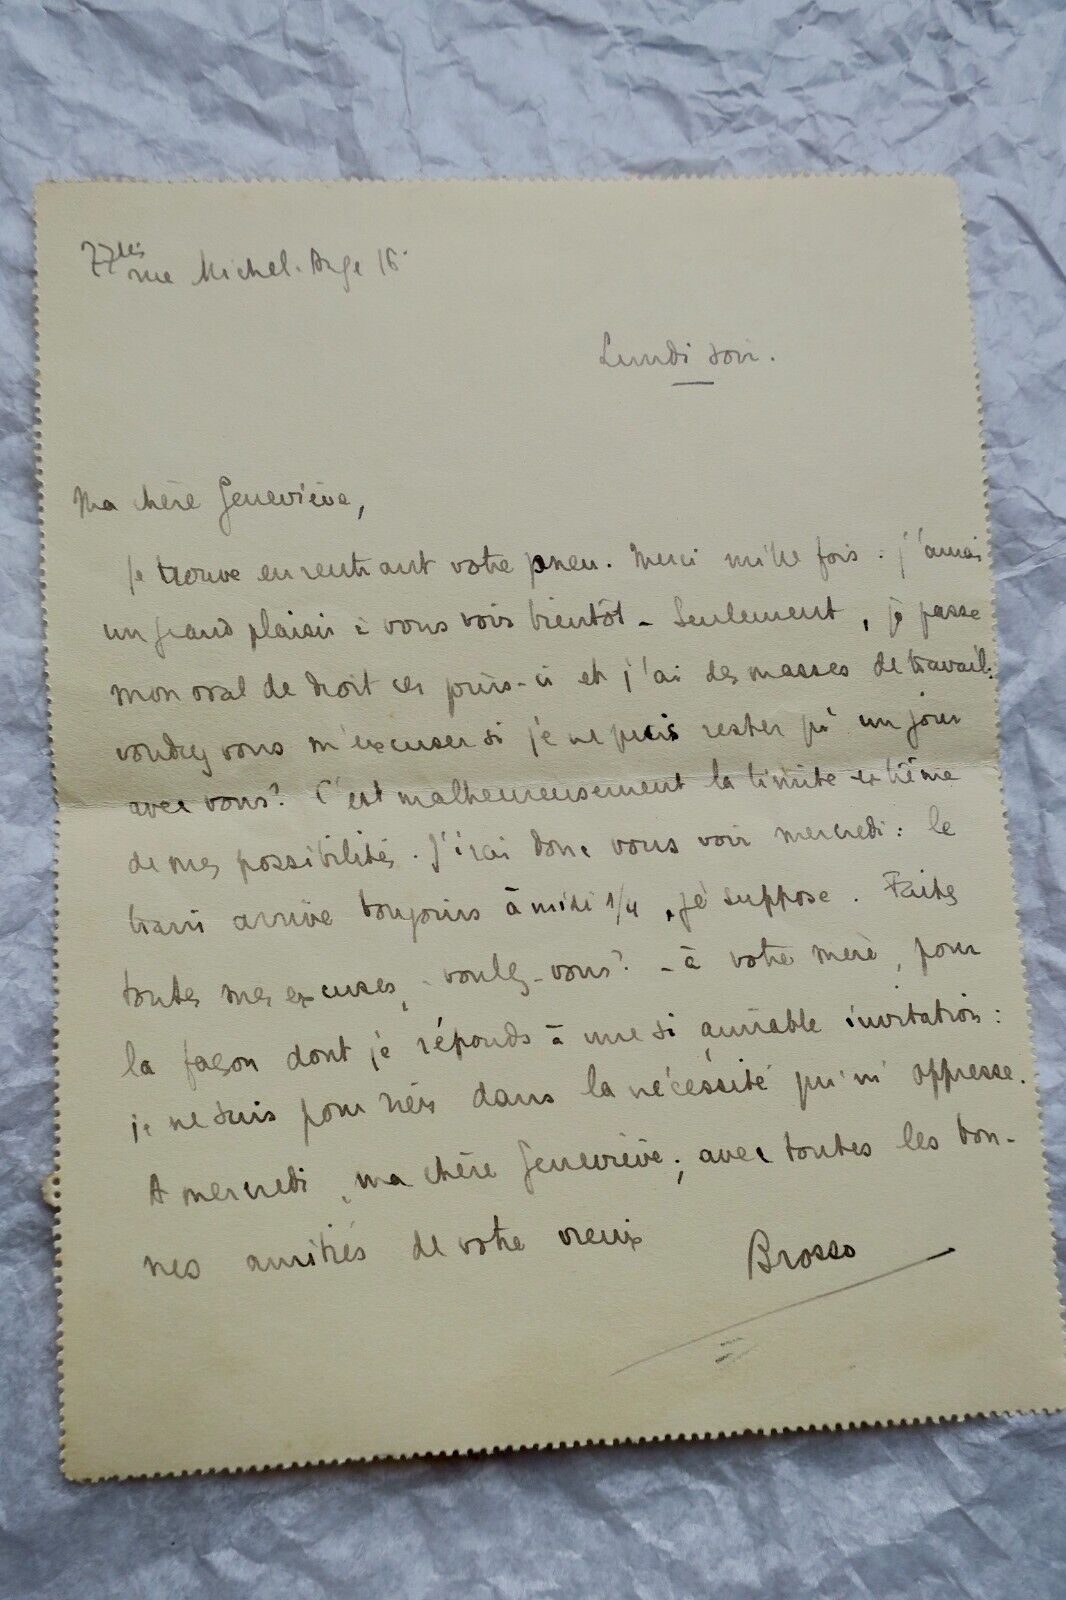 77bis rue Michel-Ange 16e
Lundi soir.
Ma chère Geneviève,
Je trouve en rentrant votre pneu. Merci mille fois. J'aurai
un grand plaisir à vous voir bientôt - Seulement, je passe
mon oral de droit ces jours-ci et j'ai des masses de travail:
voudrez vous m'excuser si je ne puis rester qu'un jour
avec vous? C'est malheureusement la limite extrême
de mes possibilités. J'irai donc vous voir mercredi: le
train arrive toujours à midi 1/4, je suppose. Faites
toutes mes excuses, - voulez-vous? - à votre mère, pour
la façon dont je réponds à une si aimable invitation:
je ne suis pour rien dans la nécéssité qui m'oppresse.
A mercredi, ma chère Geneviève, avec toutes les bon-
nes amitiés de votre vieux
Brosso